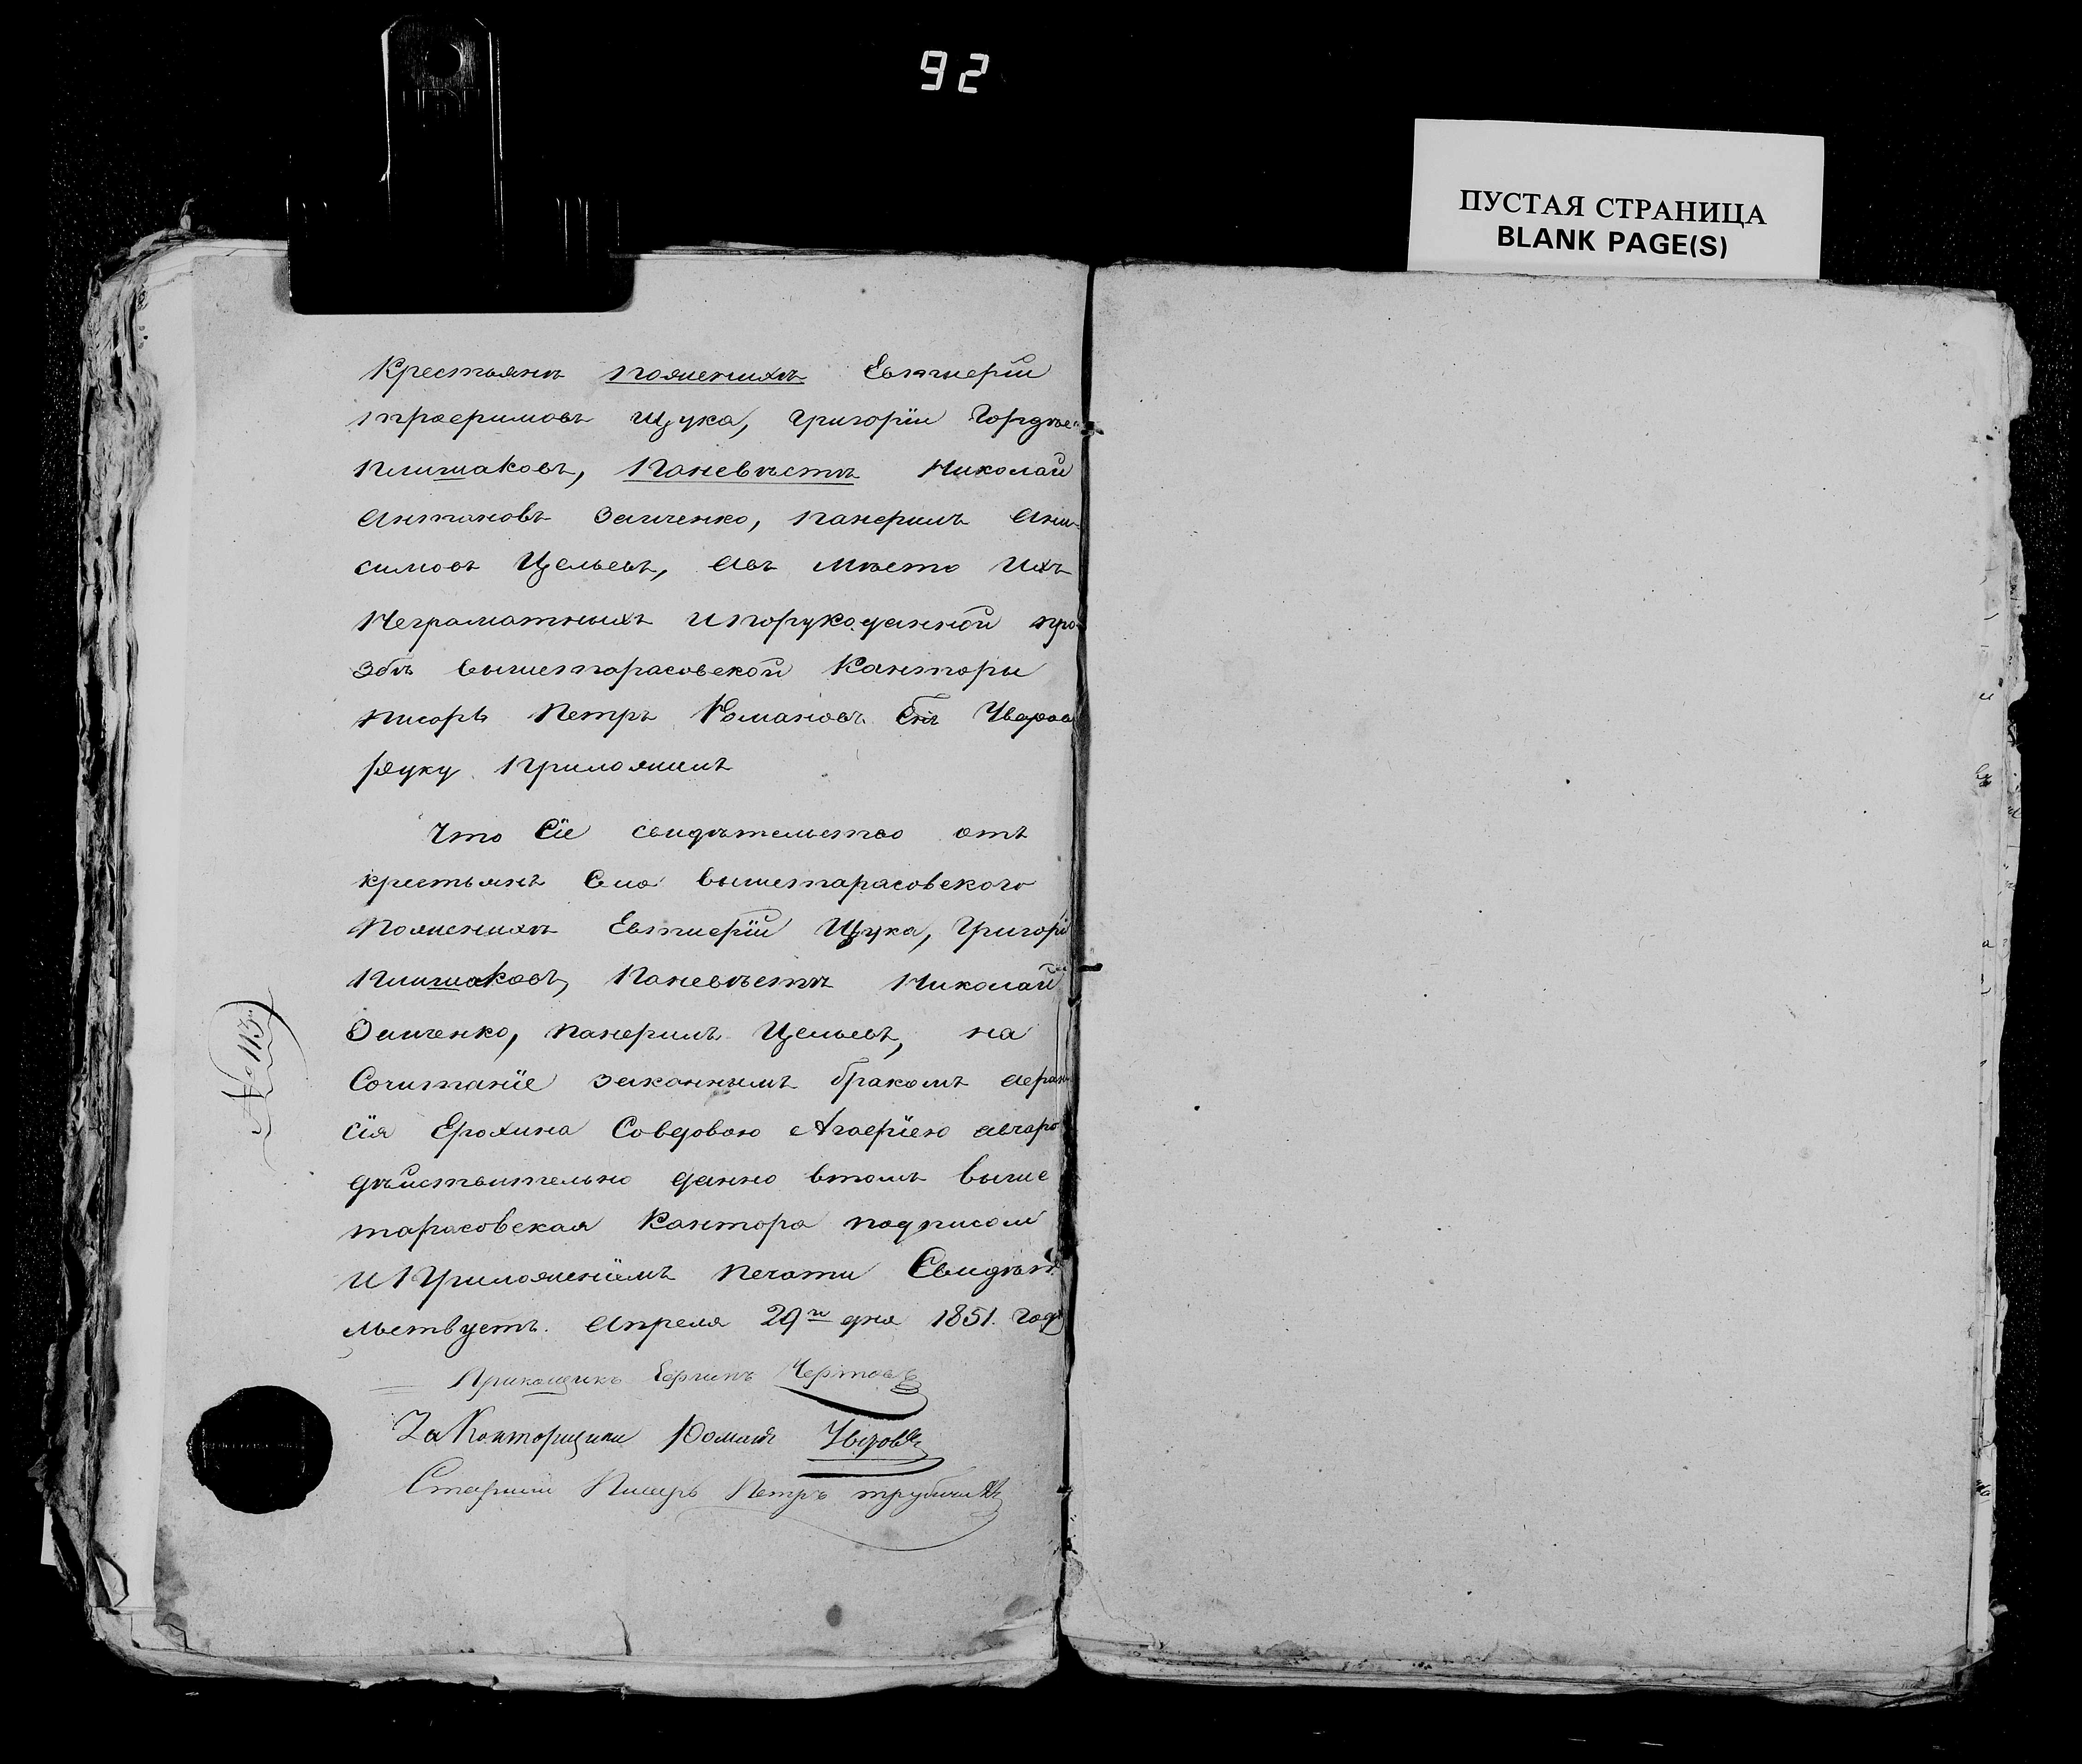 92
ПУСТАЯ СТРАНИЦА
BLANK PAGE(S)
Крестьянъ пожениху Евтиерій
трофимовъ Щука, Григорій Гордѣе
Плишаковъ, Поневѣстѣ Николай
Антоновъ Заиченко, панфилъ Ани-
симовъ Цельевъ, Авъ Мѣсто Ихъ
Неграматныхъ ипорукоданной про-
збѣ вышетарасовской Канторы
писорь Петръ Романовъ Снъ
руку Приложилъ
Что Сіе свидѣтельство отъ
крестьянъ Сла вышетарасовского
Поженихѣ Евтиерій Щука, Григорі
Плишаковъ, Поневѣстѣ Николай
Заиченко, панфилъ Цельевъ, на
Сочитаніе законнымъ бракомъ афана
сія Ерохина Совдовою Агафіею
дѣйствительно данно втомъ выше
тарасовская Кантора подписом
и Приложеніемъ печати Свидѣте
льствуетъ. Апреля 29го дня 1851. Года
№ 113й
Прикащикъ Чертовъ
За Конторщика Романъ
Старшій Писарь Петръ